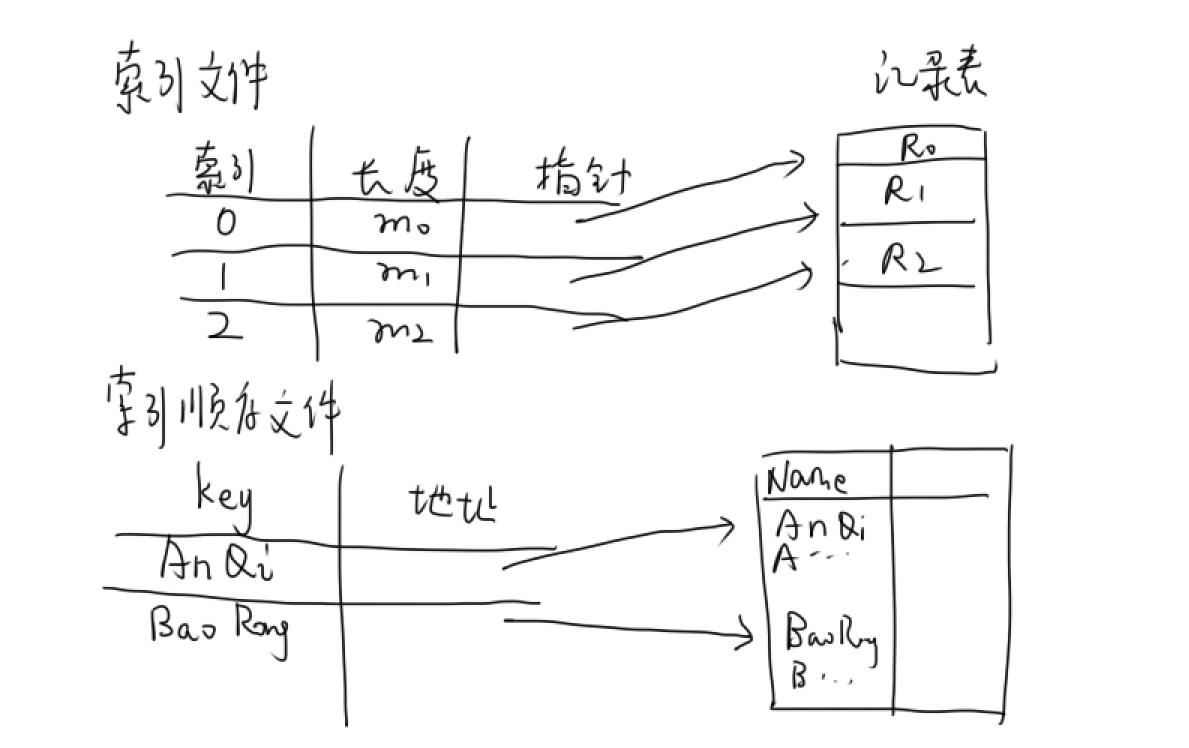 索引文件
记录表
索引 长度 指针
0 m0
1 m1
2 m2
R0
R1
R2
索引顺序文件
key 地址
An Qi
Bao Rong
Name
An Qi
A ....
BaoRong
B ...